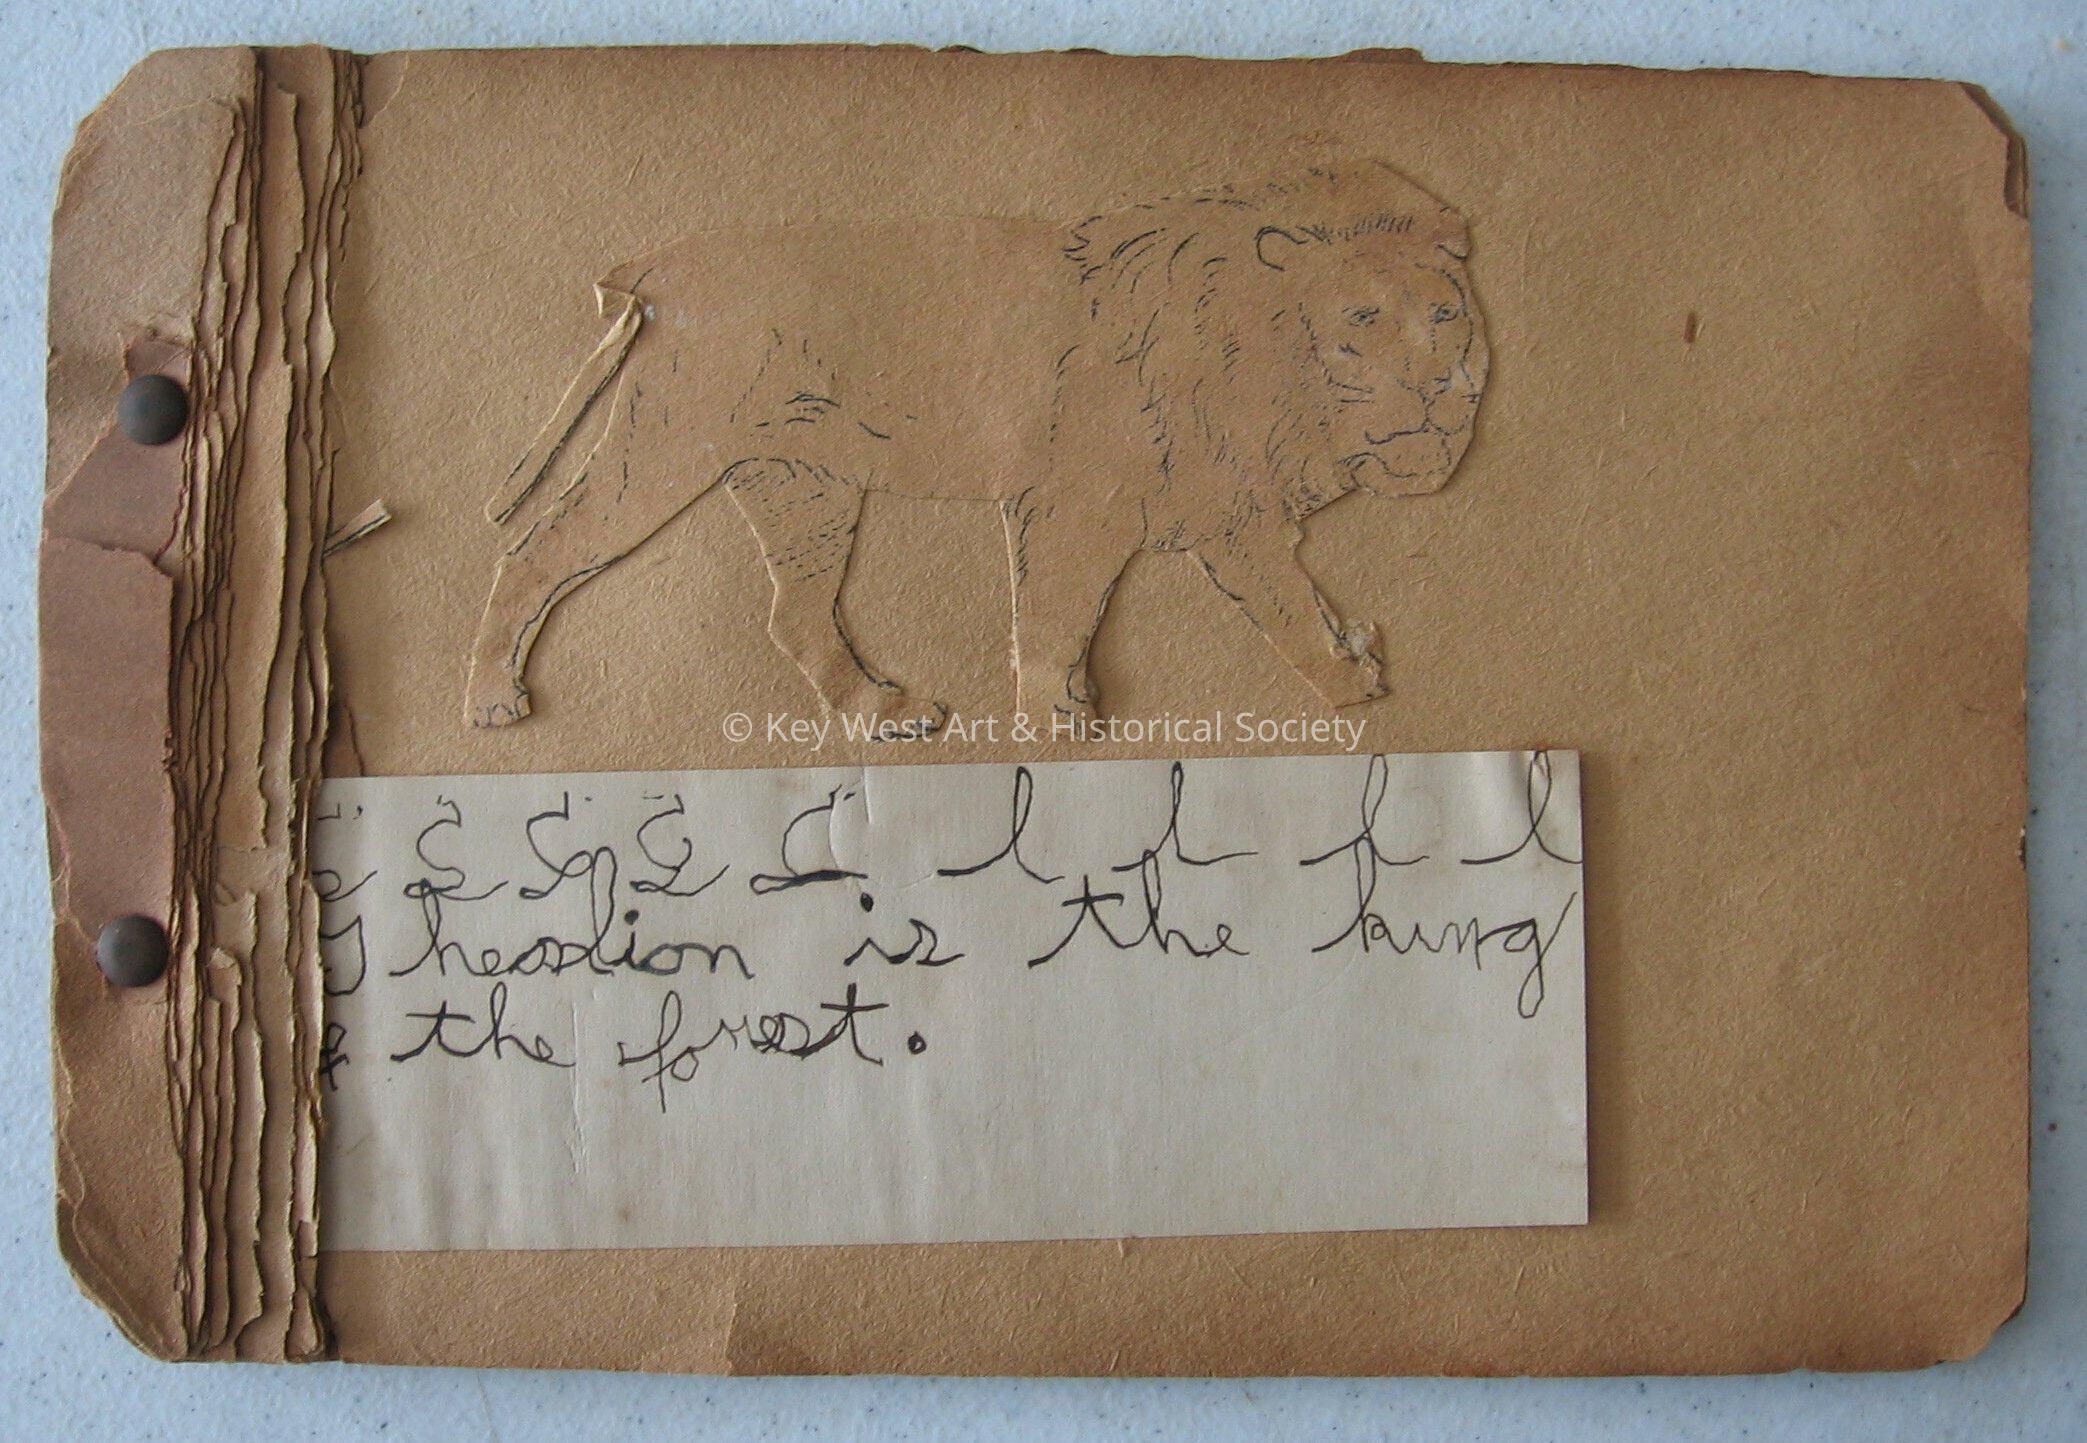 © Key West Art & Historical Society
l l l l
The lion is the king
the forest.